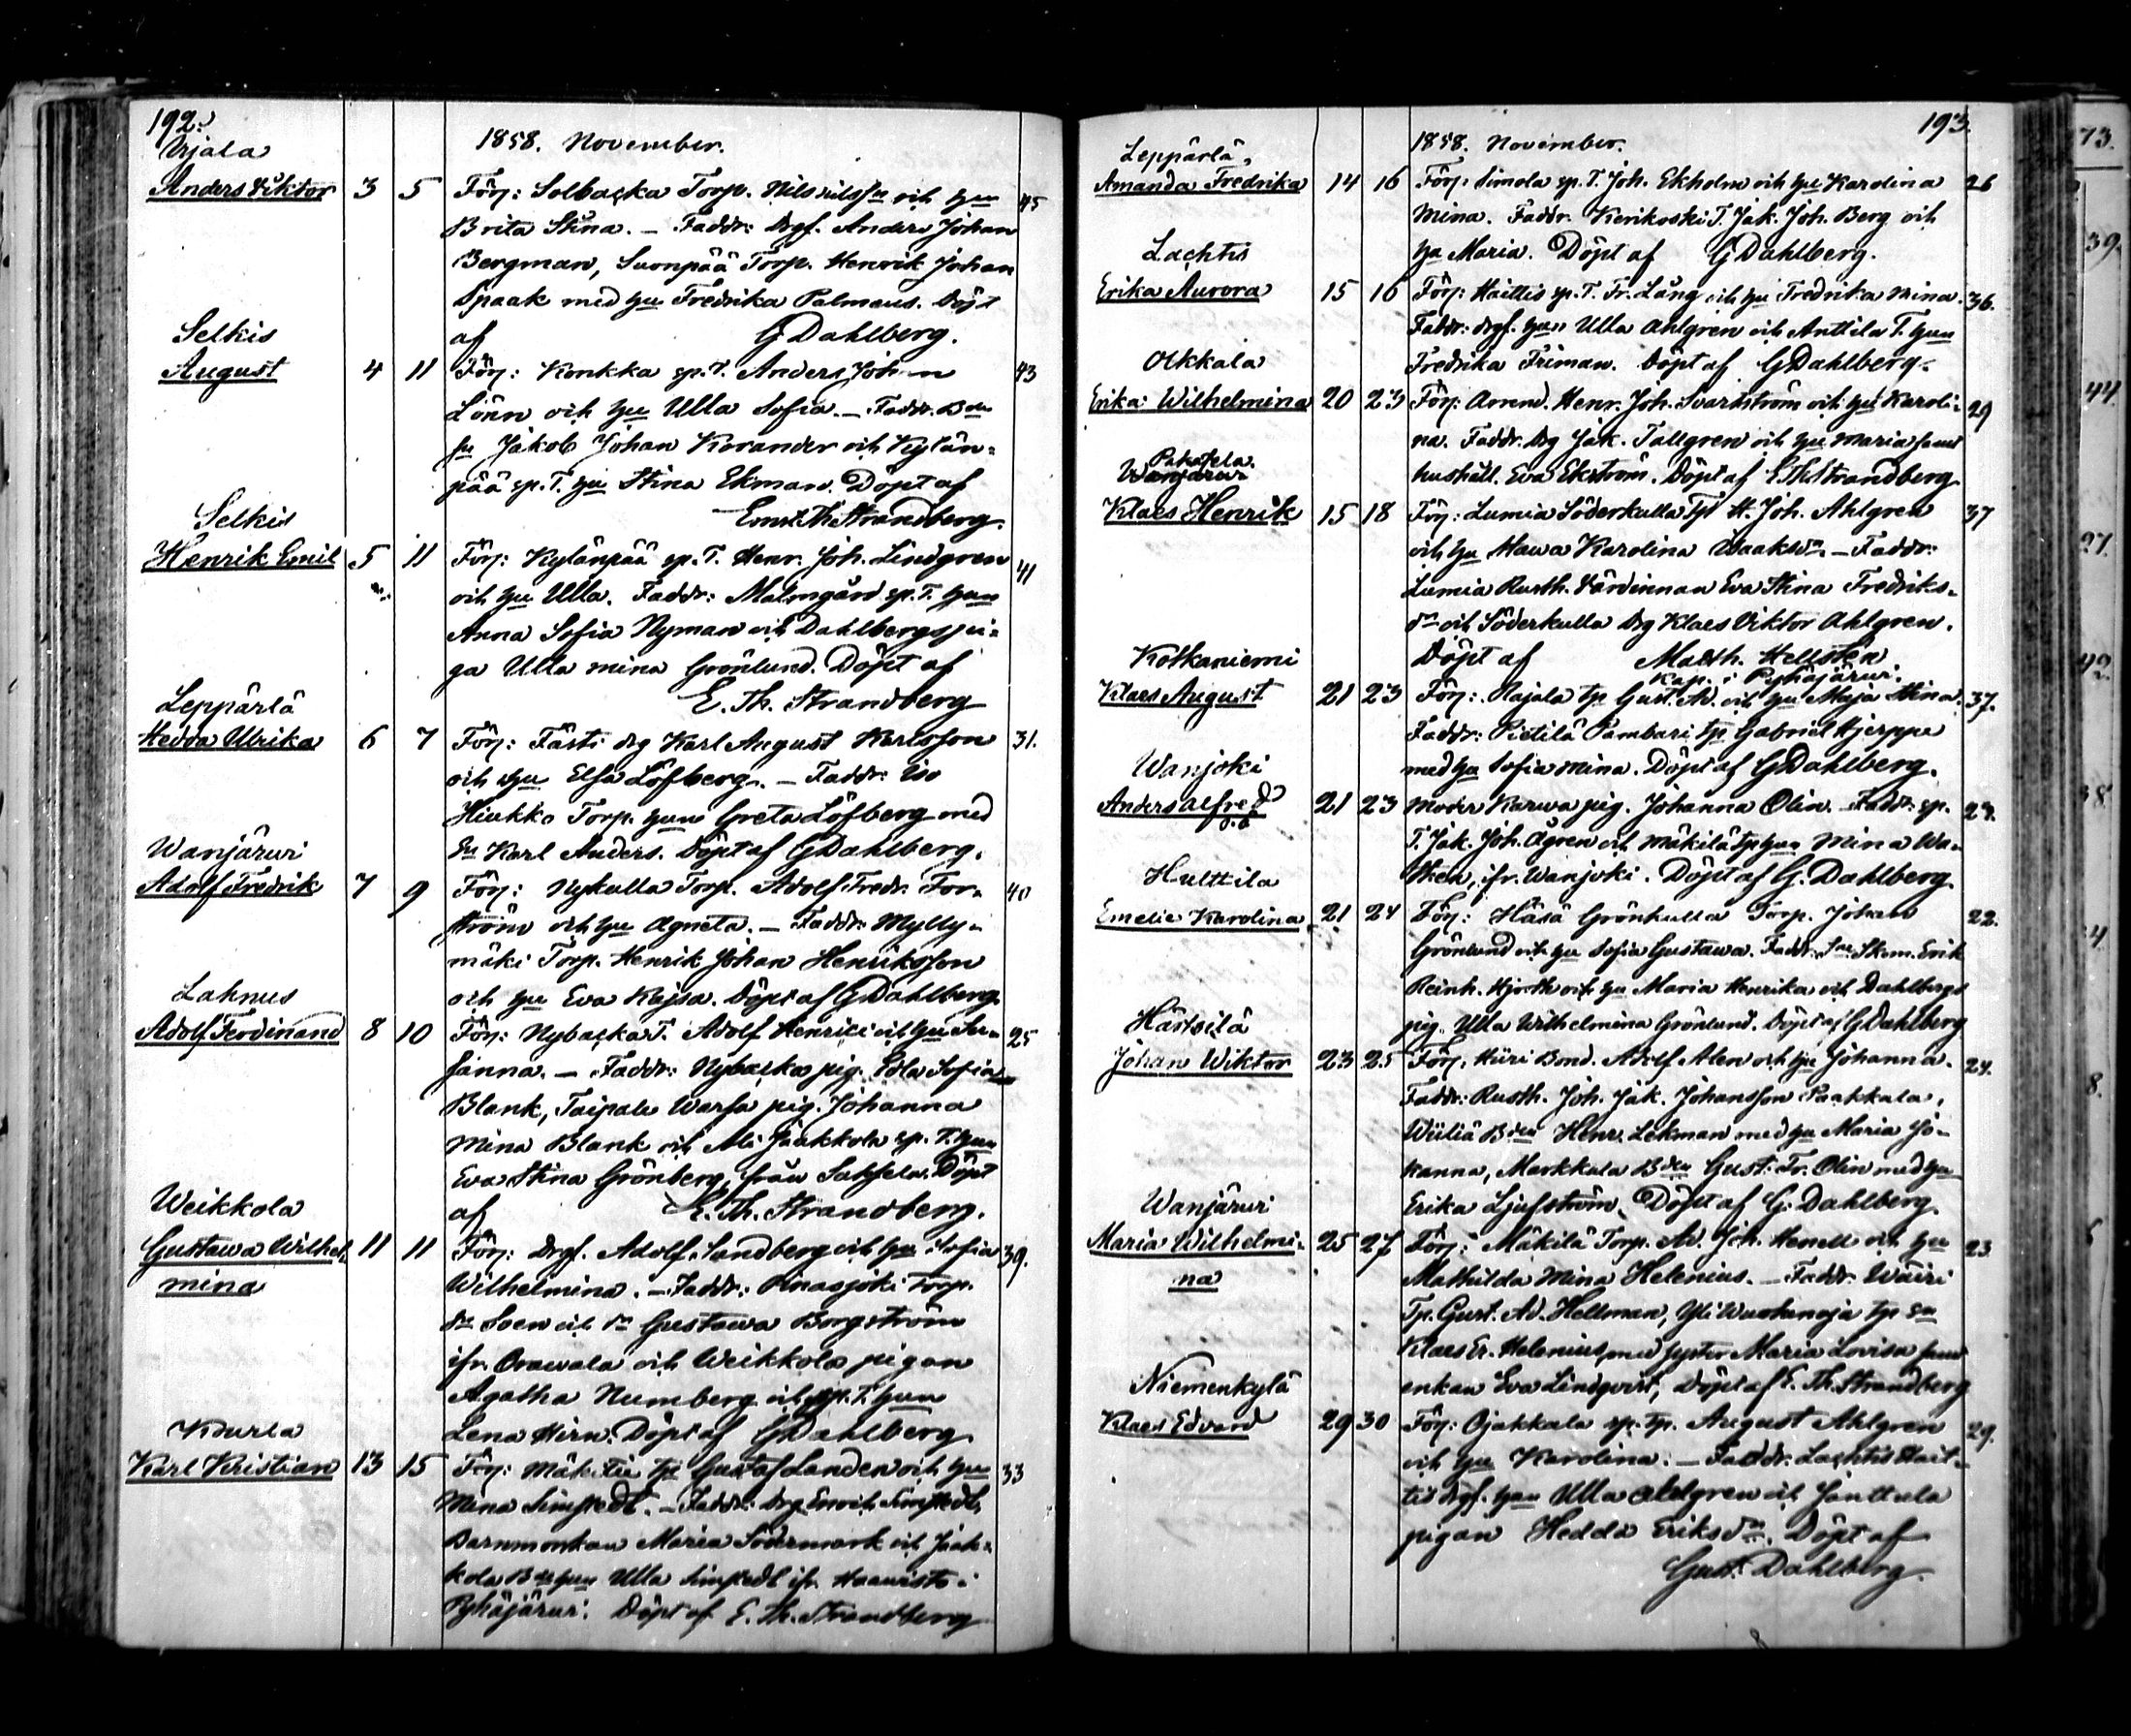 192.
1858. November.
Urjala
Anders Viktor 3 5 Förj: Solbacka Torp. Nils Nilsson och hu 45
Brita Stina. – Faddr: drgf. Anders Johan
Bergman, Suonpää Torp. Henrik Johan
Spaak med hu Fredrika Palmaus. Döpt
af G Dahlberg.
Selkis
August 4 11 Förj: Konkka sp. T. Anders Johan 43
Lönn och hu Ulla Sofia. – Faddr. Bde
sn Jakob Johan Korander och Kylän-
pää sp. T. hu Stina Ekman. Döpt af
Ernst Th Strandberg.
Selkis
Henrik Emil 5 11 Förj: Kylänpää sp. T. Henr. Joh. Lindgren 41
och hu Ulla. Faddr: Malmgård sp. T. hun
Anna Sofia Nyman och Dahlbergs pi-
ga Ulla Mina Grönlund. Döpt af
E. Th. Strandberg
Leppärlä
Hedda Ulrika 6 7 Förj: Fästi drg Karl August Karlsson 31.
och hu Elsa Löfberg. – Faddr: Iso
Hiukko Torp. hun Greta Löfberg med
sn Karl Anders. Döpt af G Dahlberg.
Wanjärwi
Adolf Fredrik 7 9 Förj: Nykulla Torp. Adolf Fredr. For- 40
ström och hu Agneta. – Faddr: Mylly-
mäki Torp. Henrik Johan Henriksson
och hu Eva Kajsa. Döpt af G Dahlberg.
Lahnus
Adolf Ferdinand 8 10 Förj: Nybacka T. Adolf Henrici och hu Su- 25
sanna. – Faddr: Nybacka pig. Edla Sofia
Blank, Taipale Warsa pig. Johanna
Mina Blank och Ali Jaakkola sp. T. hun
Eva Stina Grönberg, från . Döpt
af E. Th. Strandberg.
Weikkola
Gustawa Wilhel- 11 11 Förj: Drgf. Adolf Sandberg och hu Sofia 39.
mina Wilhelmina. – Faddr: Torp.
sn Sven och dr Gustawa Borgström
ifr. Orawala och Weikkola pigan
Agatha Numberg och sp. T. hun
Lena Hirn. Döpt af G Dahlberg
Kourla
Karl Kristian 13 15 Förj: Mäkitie tp Gustaf Landen och hu 33
Mina Simstedt. – Faddr: Drg Enoch Simstedt,
Barnmorskan Maria Södermark och Jaak-
kola Bde hun Ulla Simstedt ifr. Haawisto i
Pyhäjärwi. Döpt af E. Th. Strandberg
193.
1858. November.
Leppärlä.
Amanda Fredrika 14 16 Förj: Simola sp. T. Joh. Ekholm och hu Karolina 26
Mina. Faddr. Kerikoski T. Jak. Joh. Berg och
hu Maria. Döpt af G Dahlberg.
Lachtis
Erika Aurora 15 16 Förj: Haittis sp. T. Fr. Lång och hu Fredrika Mina. 36.
Faddr: drgf. hun Ulla Ahlgren och Anttila T. hun
Fredrika Friman. Döpt af G Dahlberg.
Olkkala
Erika Wilhelmina 20 23 Förj. Arrend. Henr. Joh. Svartström och hu Karoli- 29
na. Faddr. Drg Jak. Tallgren och hu Maria samt
hushåll. Eva Ekström. Döpt af E Th Strandberg
Pakasela.
Wanjärwi
Klaes Henrik 15 18 Förj: Lumia Söderkulla Tpf H. Joh. Ahlgren 37
och hu Hawa Karolina . – Faddr:
Lumia Rusth. Värdinnan Eva Stina Fredriks-
dr och Söderkulla drg Klaes Viktor Ahlgren.
Döpt af Matth. Hellstén
Kap. i Pyhäjärwi.
Kotkaniemi
Klaes August 21 23 Förj: Rajala tp Gust. Ad. och hu Maja Stina. 37.
Faddr: Pietilä Pambari tp Gabriel Hjerppe
med hu Sofia Mina. Döpt af G Dahlberg.
Wanjoki
Anders Alfred 21 23 Moder Karwa pig. Johanna Olin. – Faddr. sp. 27.
o.ä
T. Jak. Joh. Ågren och Mäkilä tp hun Mina Wa-
, ifr. Wanjoki. Döpt af G. Dahlberg.
Hulttila
Emelie Karolina 21 24 Förj: Häsä Grönkulla Torp. Johan 22.
Grönlund och hu Sofia Gustawa. Faddr: Skom. Erik
Reinh. Hjorth och hu Maria Henrika och Dahlbergs
pig. Ulla Wilhelmina Grönlund. Döpt af G Dahlberg
Härtsilä
Johan Wiktor 23 25 Förj. Hiiri Bond. Adolf Alen och hu Johanna. 24.
Faddr: Rusth. Joh. Jak. Johansson Paakkala,
Wiiliä Bden Henr. Lekman med hu Maria Jo-
hanna, Markkula Bden Gust. Fr. Olin med hu
Erika Ljufström. Döpt af G. Dahlberg.
Wanjärwi
Maria Wilhelmi- 25 27 Förj: Mäkilä Torp. Ad. Joh. Henell och hu 23
na Mathilda Mina Helenius. – Faddr. Wäiri
Tp. Gust. Ad. Hellman, Yli Wuohenoja tp sn
Klaes Er. Helenius med syster Maria Lovisa samt
enkan Eva Lindqvist, Döpt af E. Th. Strandberg
Niemenkylä
Klaes Edvard 29 30 Förj: Ojakkala sp. tp. August Ahlgren 29.
och hu Karolina. – Faddr. Lachtis Hait-
tis drgf. hun Ulla Ahlgren och Janttula
pigan Hedda Eriksdr. Döpt af
Gust. Dahlberg.
73.
39.
44.
27.
42.
38.
4.
8.